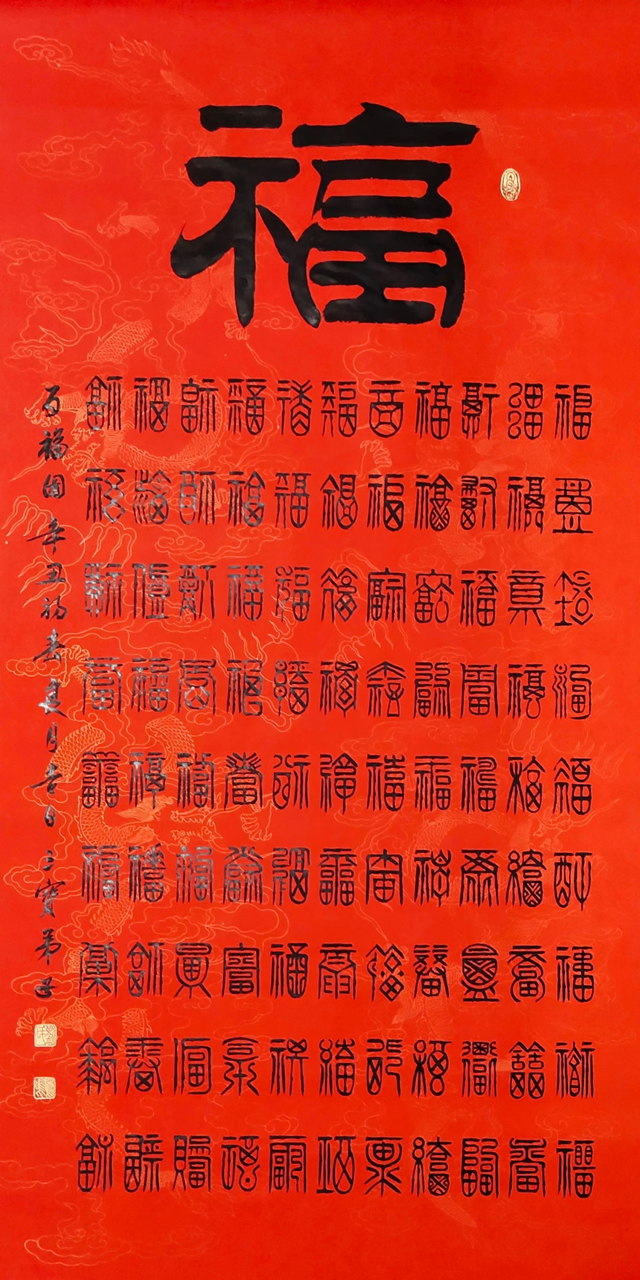 福
福福福福福福福福福
福福福福福福福福福
福福福福福福福福福
福福福福福福福福福
福福福福福福福福福
福福福福福福福福福
福福福福福福福福福
福福福福福福福福福
福福福福福福福福福
福福福福福福福福福
福福福福福福福福福
百福图辛丑初春良月吉日三寶弟子